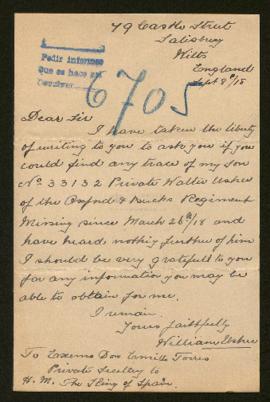 79 Castle Street
Salisbury
Wilts
England
Sept 8th/18
Pedir informes
Que se hace así
Devolver
6705
Dear Sir
I have taken the liberty
of writing to you to ask you if you
could find any trace of my Son
No 33132 Private Walter Usher
of the Oxford & Bucks Regiment
Missing since March 26th/18 and
have heard nothing further of him
I should be very grateful to you
for any information you may be
able to obtain for me.
I remain
Yours faithfully
William Usher
To Excmo Don Emilio Torres
Private Secretary to
H. M. The King of Spain.